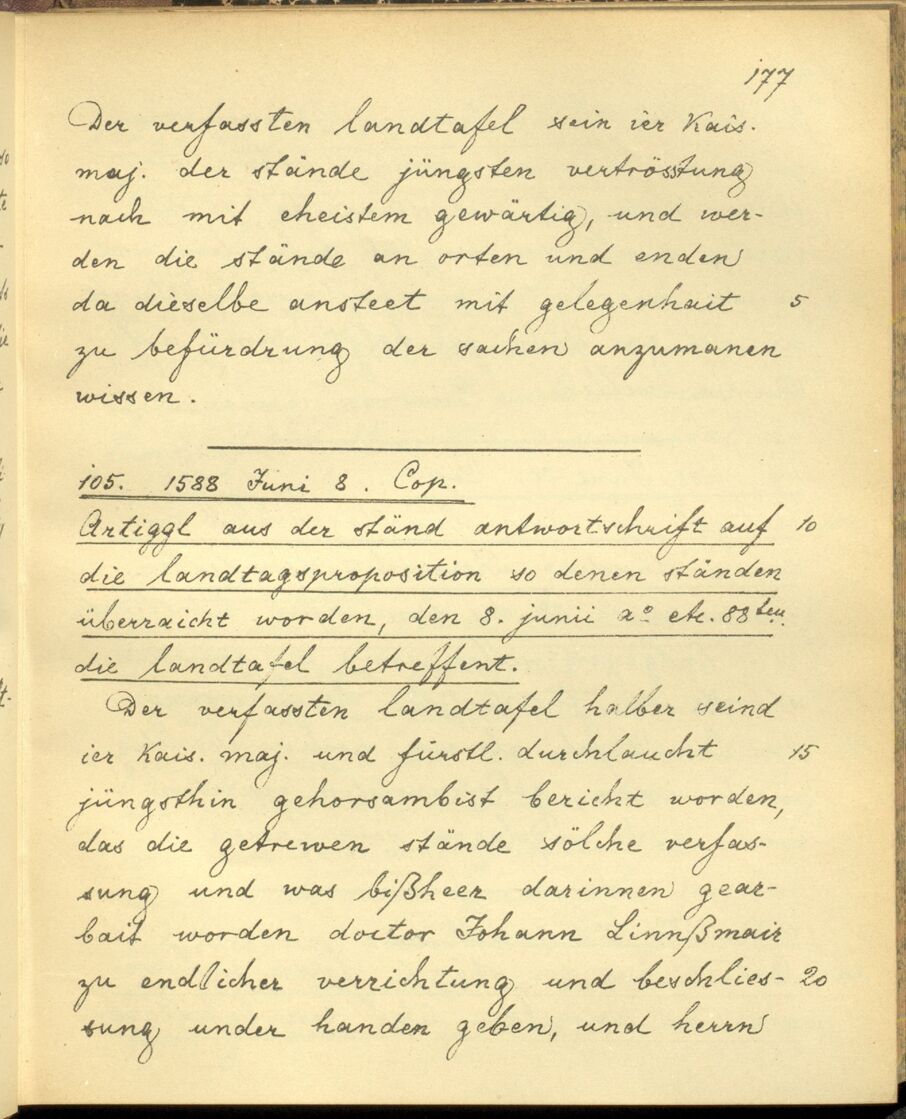 177
Der verfassten landtafel sein ier Kais.
maj. der stände jüngsten vertrösstung
nach mit eheistem gewärtig, und wer-
den die stände an orten und enden
da dieselbe ansteet mit gelegenhait 5
zu befürdrung der sachen anzumanen
wissen.
105. 1588 Juni 8. Cop.
Artiggl aus der ständ antwortschrift auf 10
die landtagsproposition so denen ständen
überraicht worden, den 8. junii aº etc. 88ten.
die landtafel betreffent.
Der verfassten landtafel halber seind
ier Kais. maj. und fürstl. durchlaucht 15
jüngsthin gehorsambist bericht worden,
das die getrewen stände sölche verfas-
sung und was bißheer darinnen gear-
bait worden doctor Johann Linnßmair
zu endlicher verrichtung und beschlies- 20
sung under handen geben, und herrn